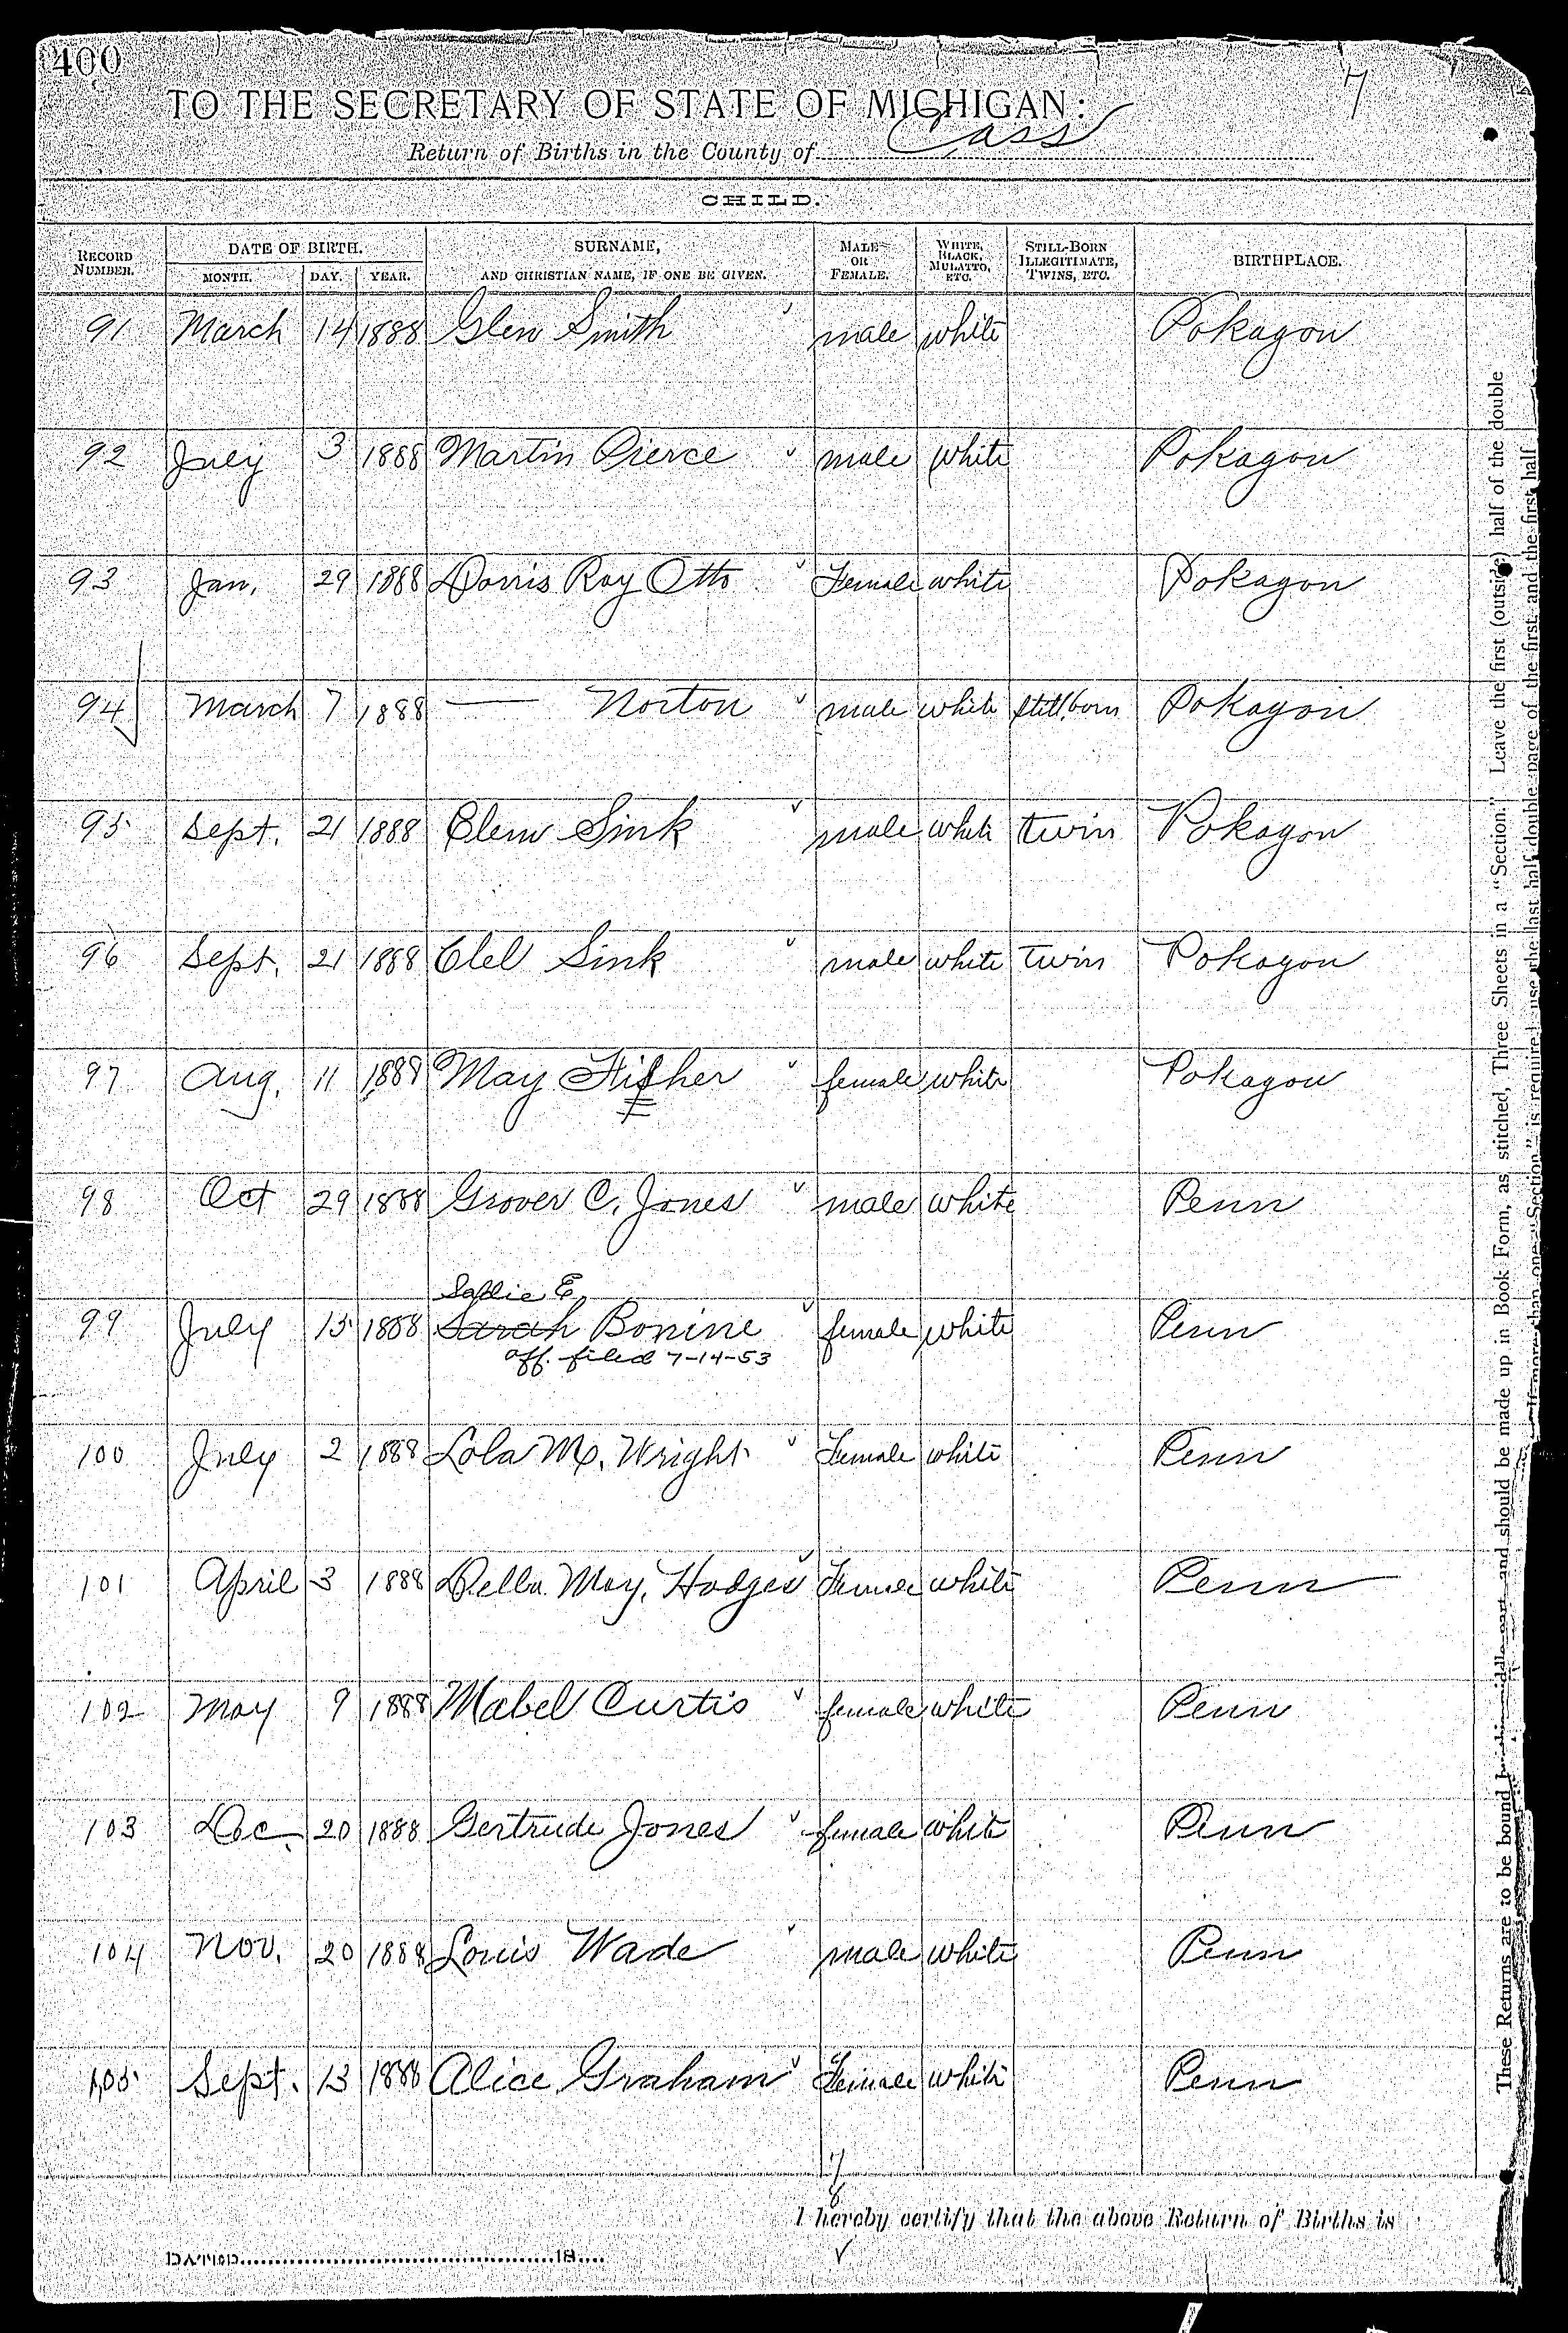 400
7
TO THE SECRETARY OF STATE OF MICHIGAN:
Return of Births in the County of Cass
CHILD.
RECORD NUMBER. DATE OF BIRTH. MONTH. DAY. YEAR. SURNAME, AND CHRISTIAN NAME, IF ONE BE GIVEN. MALE OR FEMALE. WHITE, BLACK, MULATTO, ETC. STILL-BORN ILLEGITIMATE, TWINS, ETC. BIRTHPLACE.
91 March 14 1888 Glen Smith male white Pokagon
92 July 3 1888 Martin Pierce male white Pokagon
93 Jan. 29 1888 Dorris Ray Otto Female white Pokagon
94 March 7 1888 — Norton male white still born Pokagon
95 Sept. 21 1888 Clem Sink male white twin Pokagon
96 Sept. 21 1888 Clel Sink male white twin Pokagon
97 Aug. 11 1888 May female white Pokagon
98 Oct 29 1888 Grover C. Jones male white Penn
Sallie E.
99 July 15 1888 Sarah Bonine female white Penn
aff. filed 7-14-53
100 July 2 1888 Lola M. Wright female white Penn
101 April 3 1888 Della May, Hodges Female white Penn
102 May 9 1888 Mabel Curtis female white Penn
103 Dec. 20 1888 Gertrude Jones female white Penn
104 Nov. 20 1888 Louis Wade male white Penn
105 Sept. 13 1888 Alice Graham Female white Penn
7
8
I hereby certify that the above Return of Births is
DATED 18
These Returns are to be bound middle part and should be made up in Book Form, as stitched, Three Sheets in a "Section." Leave the first (outside) half of the double
If more than one "Section" is required use the last half double page of the first, and the first half